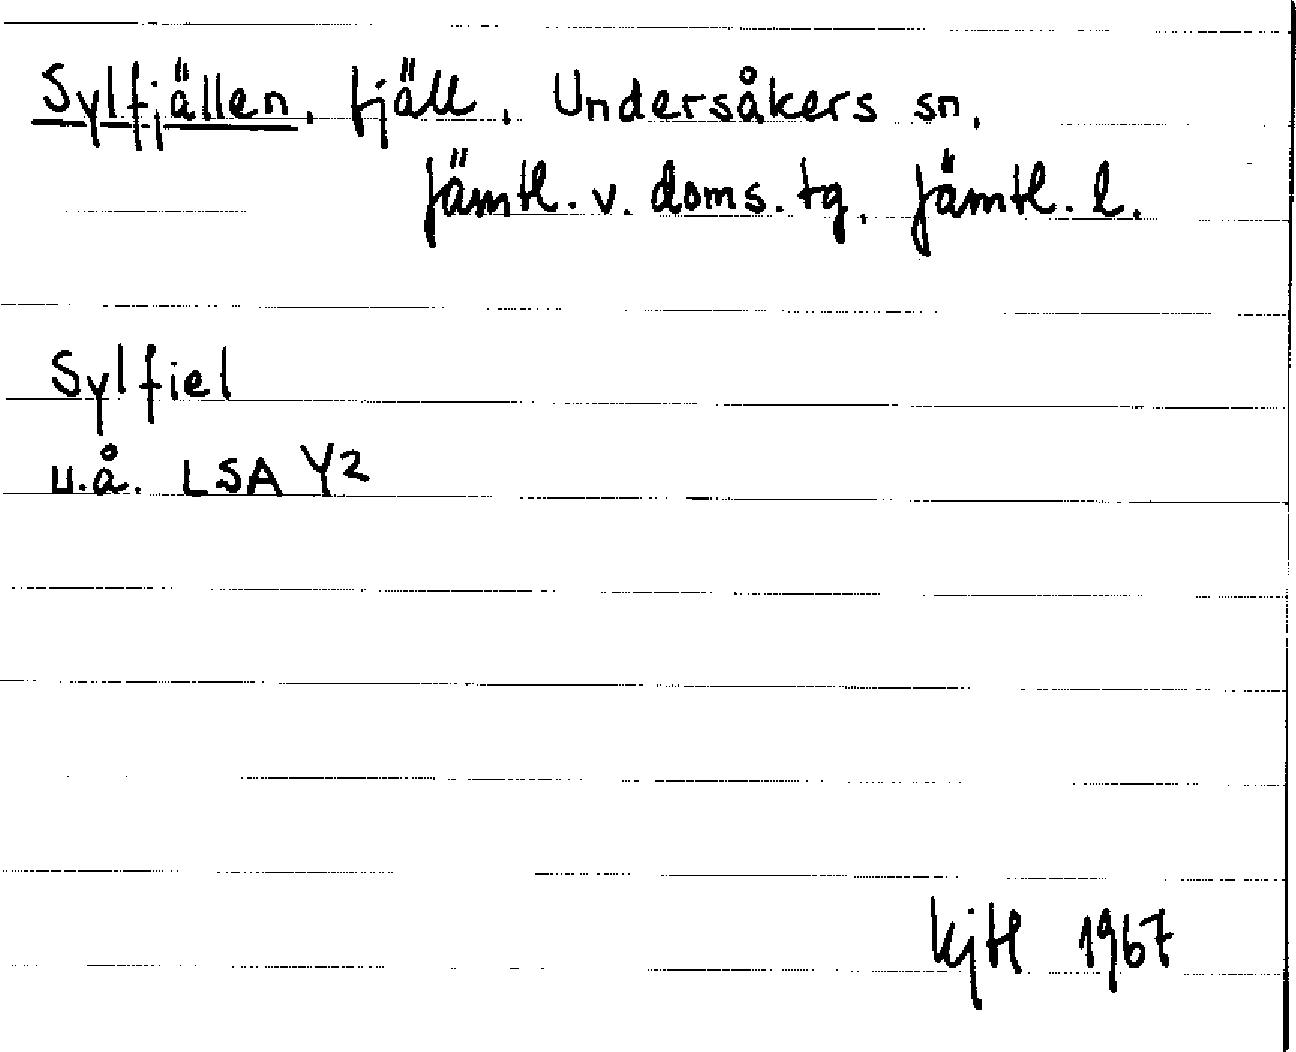 Sylfjällen, fjäll, Undersåkers sn,
Jämtl. v. doms. tg, Jämtl. l.
Sylfiel
u.å. LSA Y2
KjH 1967